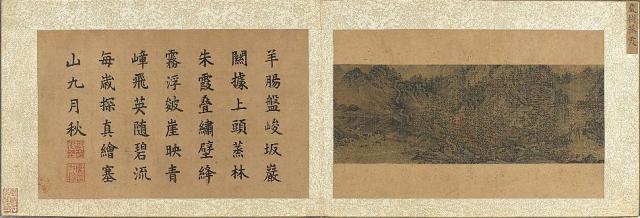 羊腸盤峻坂巖
關據上頭蒸林
朱霞叠繡壁絳
霧浮皴崖映青
嶂飛英隨碧流
每歳探真繪塞
山九月秋